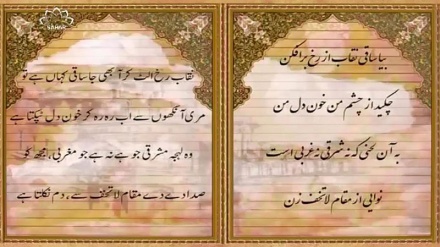 بیا ساقی نقاب از رخ برافکن
چکید از چشم من خون دل من
به آن لحنی که نه شرقی نه غربی است
نوایی از مقام لاتخف زن
نقاب رخ الٹ کر آ بھی جا ساقی کہاں ہے تو
مری آنکھوں سے اب رہ رہ کر خون دل ٹپکتا ہے
وہ لہجہ مشرقی جو ہے نہ ہے جو مغربی، تجھ کو
صدا دے دے مقام لاتخف سے، دم نکلتا ہے
SAHAR